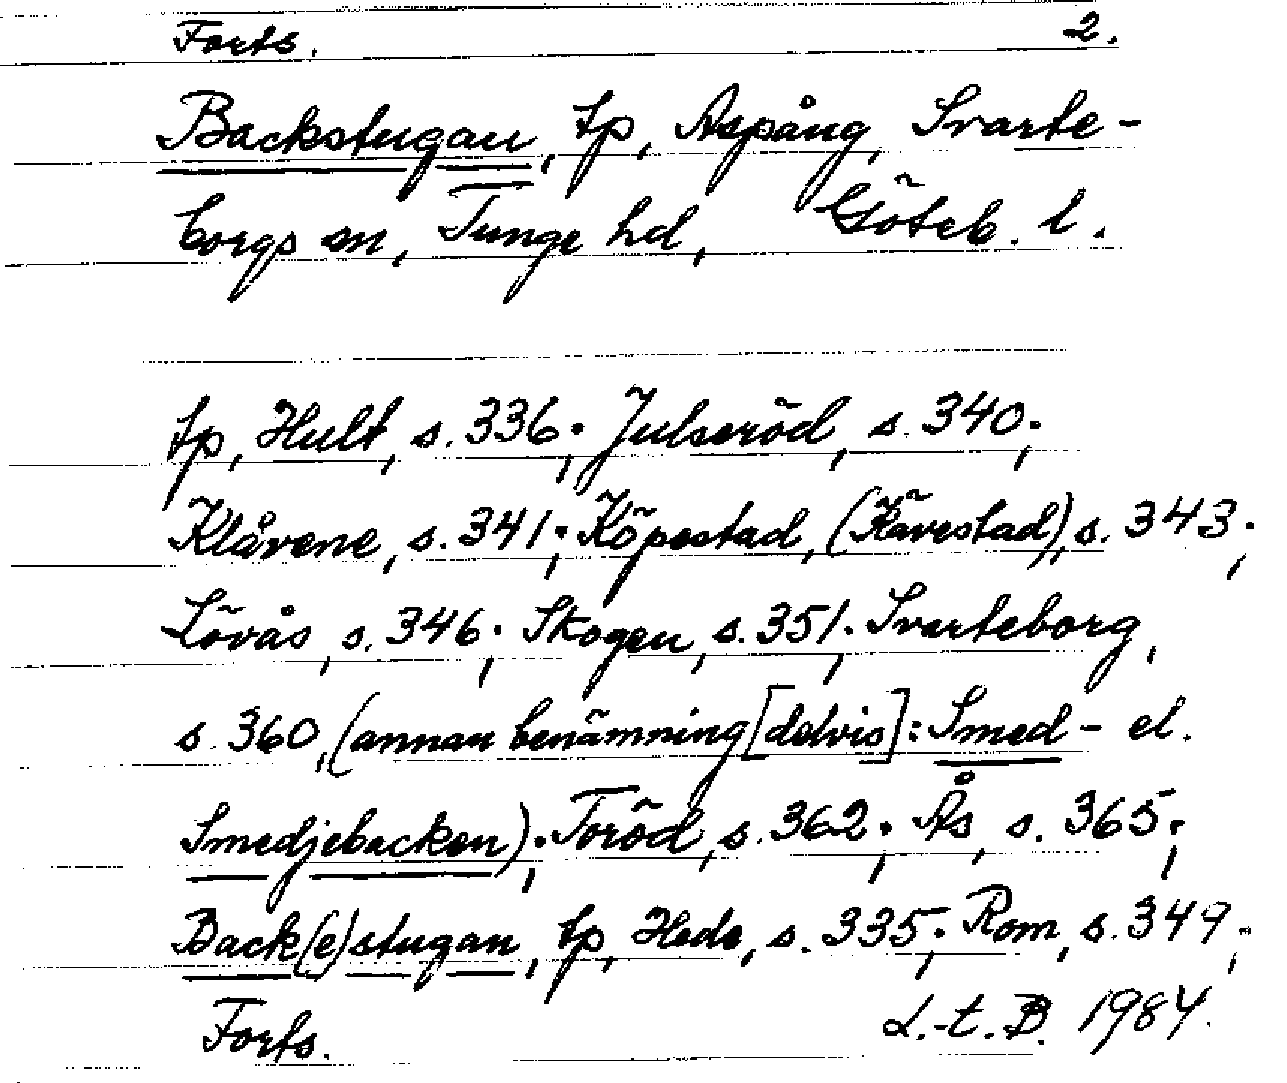 Forts. 2.
Backstugan, tp, Aspång, Svarte-
borgs sn, Tunge hd, Göteb. l.
tp, Hult, s. 336; Julseröd, s. 340;
Klåvene, s. 341; Köpestad, (Kävestad), s. 343;
Lövås, s. 346; Skogen, s. 351; Svarteborg,
s. 360, (annan benämning [delvis]: Smed- el.
Smedjebacken); Toröd, s. 362; Ås, s. 365;
Back(e)stugan, tp, Hede, s. 335; Rom, s. 349;
Forts. L.-t. B. 1984.